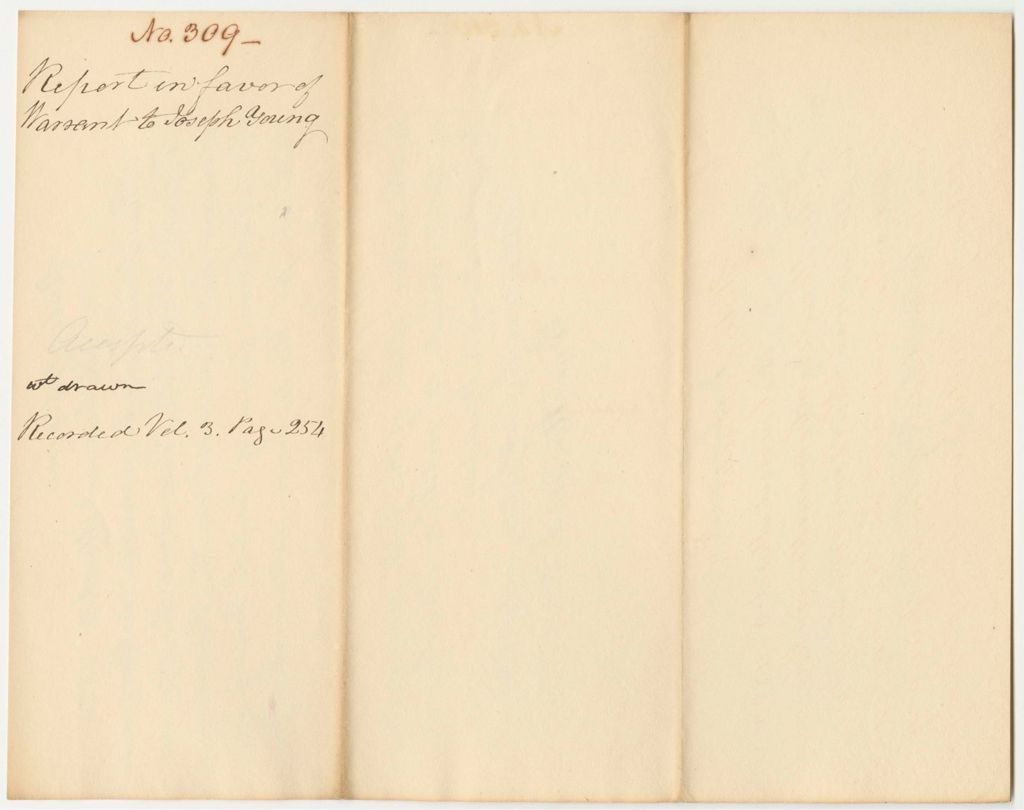 No. 309_
Report in favor of
Warrant to Joseph Young
Accepted
wt drawn
Recorded Vol. 3. Page 254